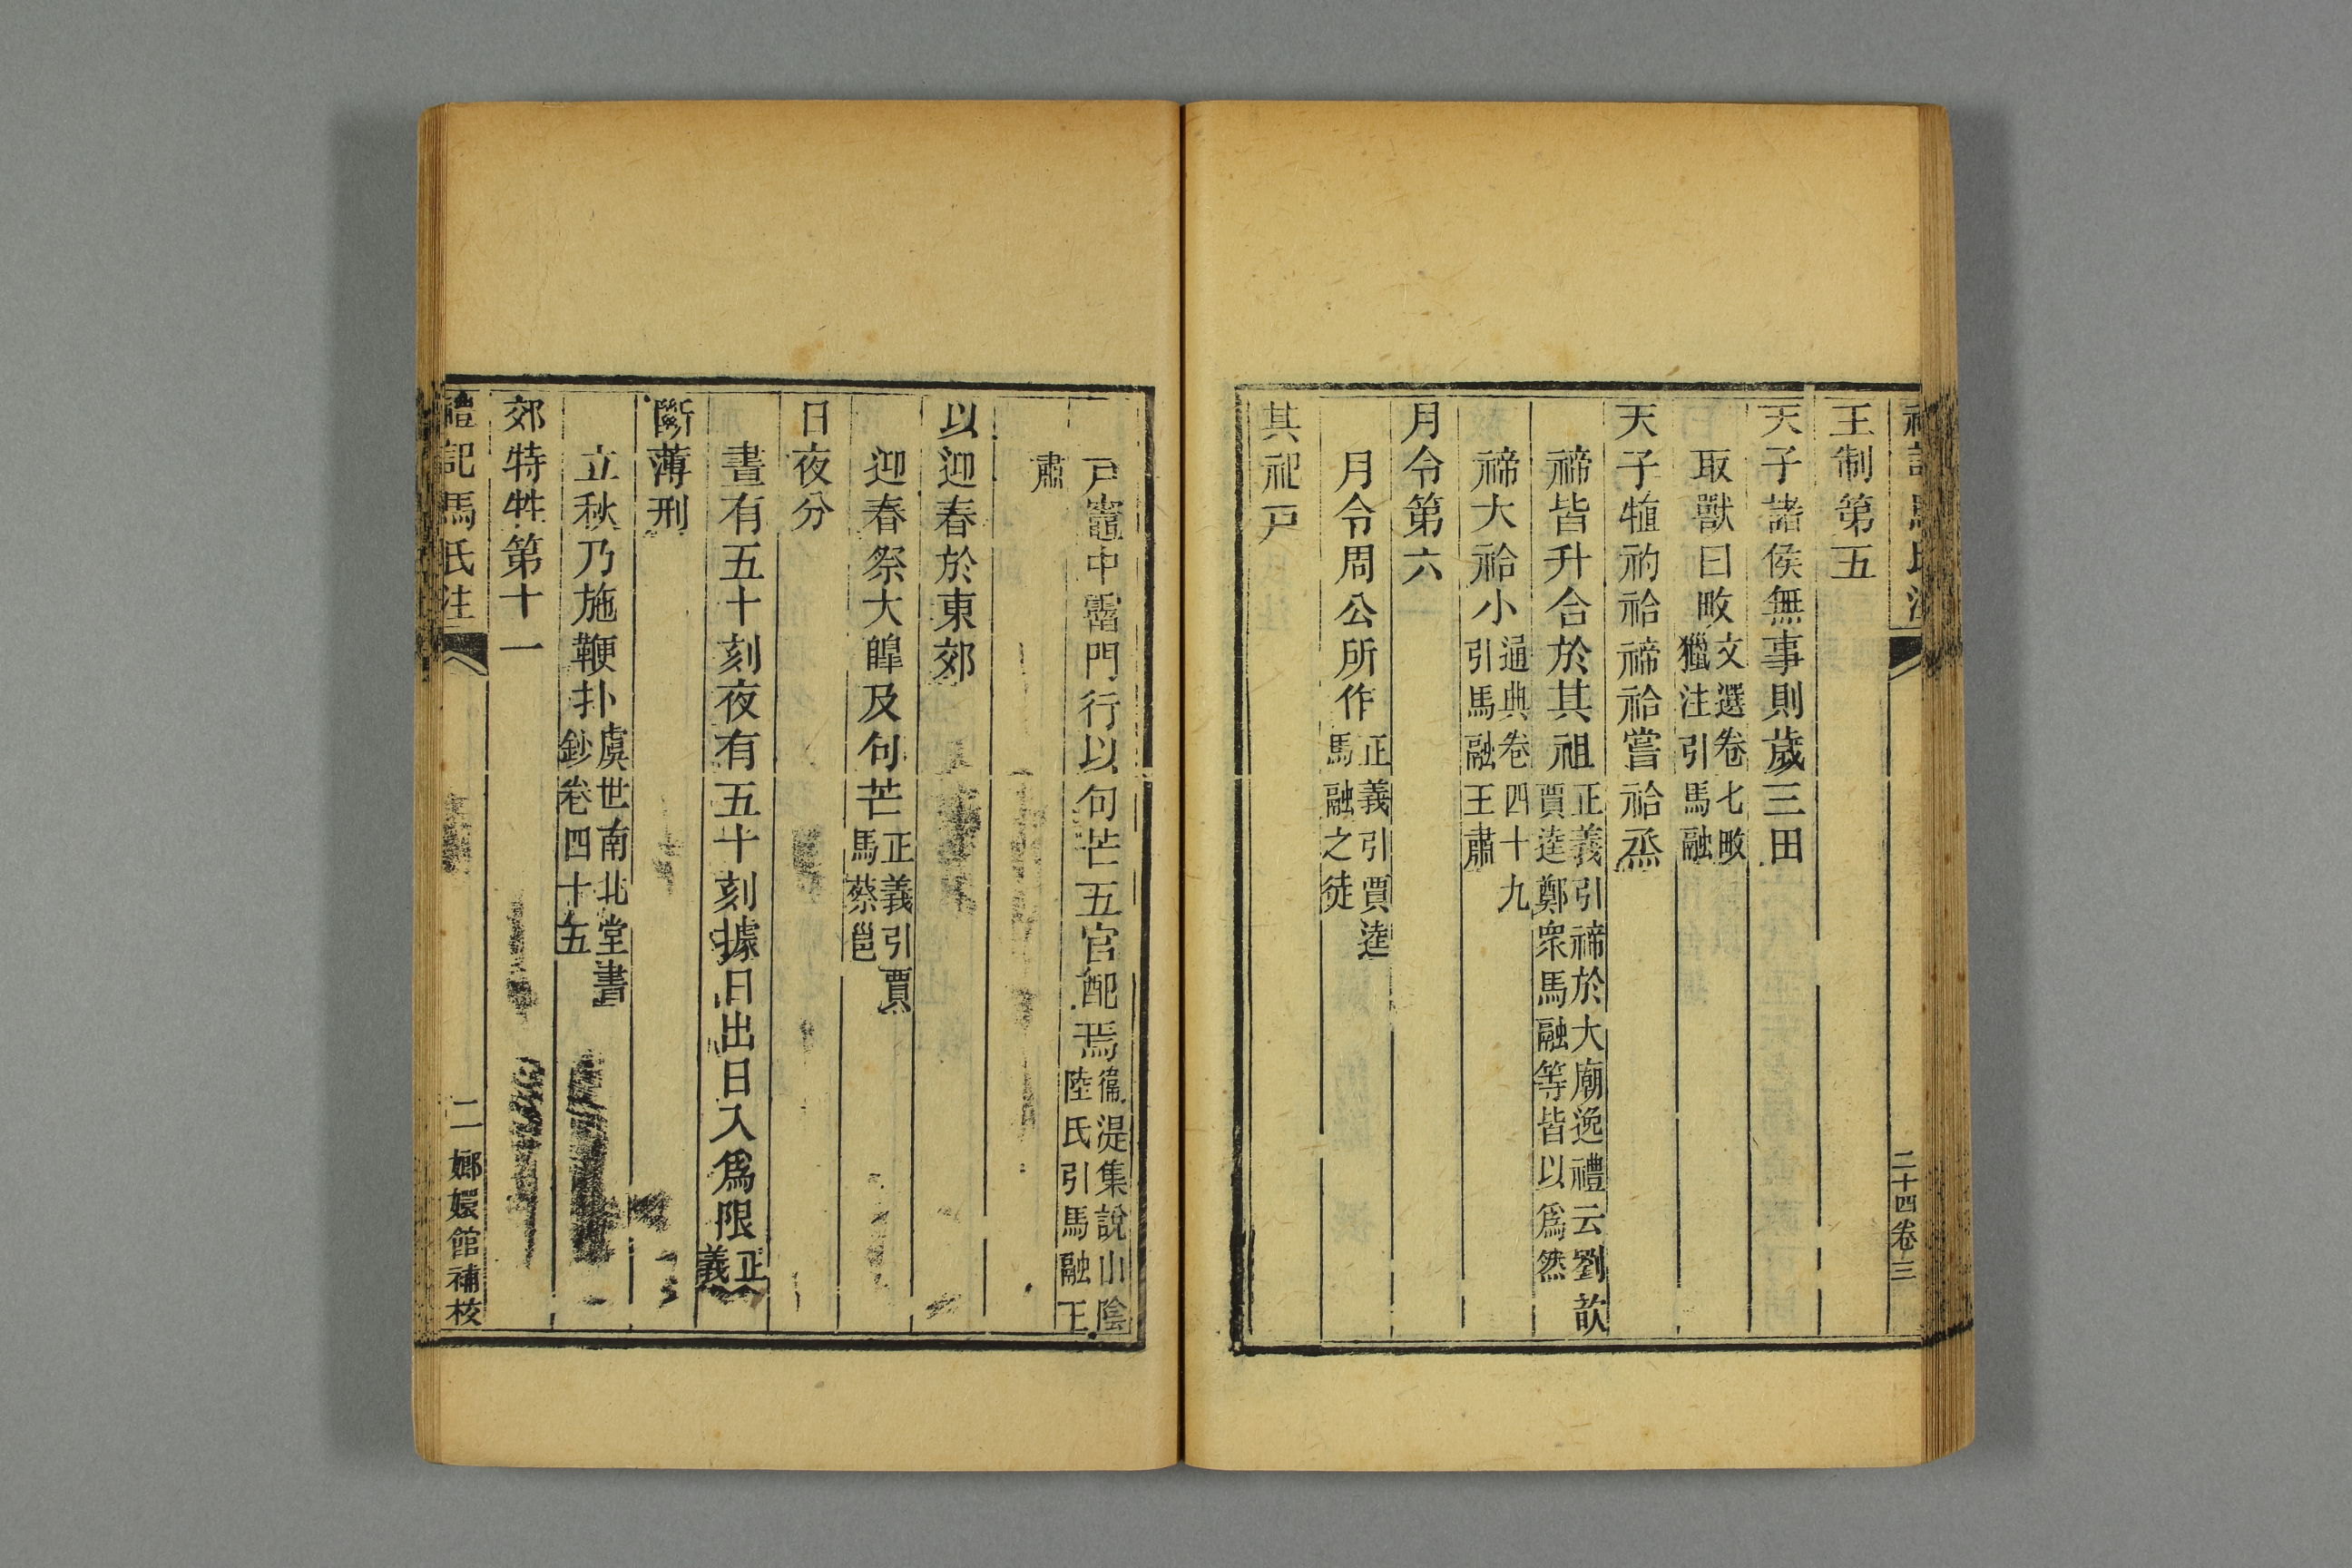 王制第五
天子諸侯無事則歲三田
取獸曰畋文選卷七畋
獵注引馬融
天子犆礿祫禘祫嘗祫烝
禘皆升合於其祖正義引禘於大廟逸禮云劉歆
賈逵鄭衆馬融等皆以爲然
禘大祫小通典卷四十九
引馬融王肅
月令第六
月令周公所作正義引賈逵
馬融之徒
其祀戸
二十四卷三
戸竈中霤門行以句芒五官配焉衞湜集說山陰
陸氏引馬融王
肅
以迎春於東郊
迎春祭大皥及句芒正義引賈
馬蔡邕
日夜分
晝有五十刻夜有五十刻據日出日入爲限正
義
斷薄刑
立秋乃施鞭扑虞世南北堂書
鈔卷四十五
郊特牲第十一
禮記馬氏注
二
嫏嬛館補校